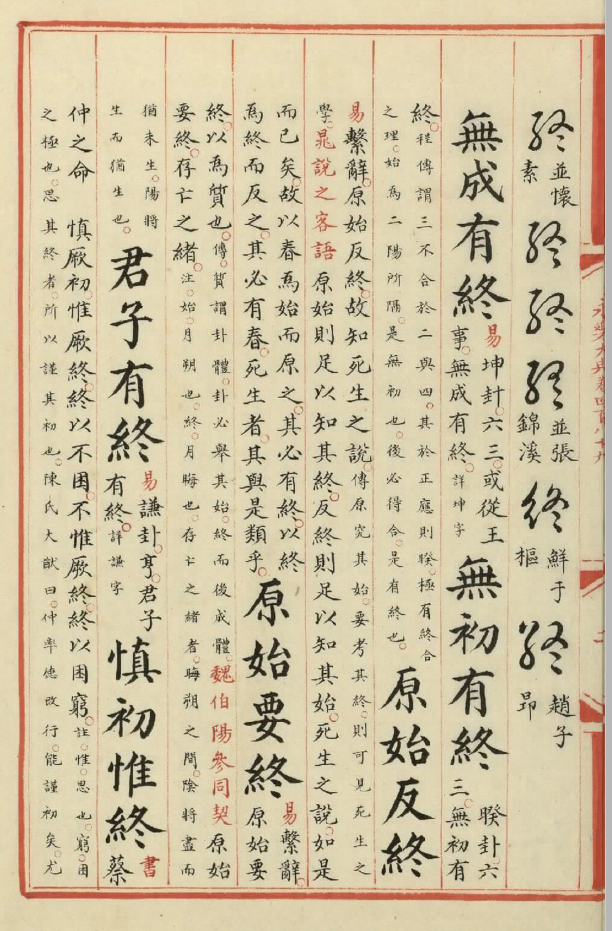 終並懷素 終 終 終並張錦溪 終鮮于樞 終趙子昂
無成有終 易坤卦。六三。或從王
事。無成有終。詳坤字 無初有終 睽卦六
三。無初有
終。程傳謂三不合於二與四。其於正應則睽極有終合
之理。始為二陽所隔。是無初也。後必得合。是有終也。 原始反終
易繫辭。原始反終。故知死生之說。傳原究其始。要考其終。則可見死生之
學。晁說之客語 原始則足以知其終。反終則足以知其始。死生之說。如是
而已矣。故以春為始而原之。其必有終。以終
為終而反之。其必有春。死生者。其與是類乎。 原始要終 易繫辭。
原始要
終。以為質也。傳質謂卦體。卦必舉其始終而後成體。魏伯陽參同契 原始
要終。存亡之緒。注。始。月朔也。終。月晦也。存亡之緒者。晦朔之間。陰將盡而
猶未生。陽將
生而猶生也。 君子有終 易謙卦。亨。君子
有終。詳謙字 慎初惟終 書
蔡
仲之命 慎厥初。惟厥終。終以不困。不惟厥終。終以困窮。註。惟。思也。窮。困
之極也。思其終者。所以謹其初也。陳氏大猷曰。仲率德改行。能謹初矣。尤